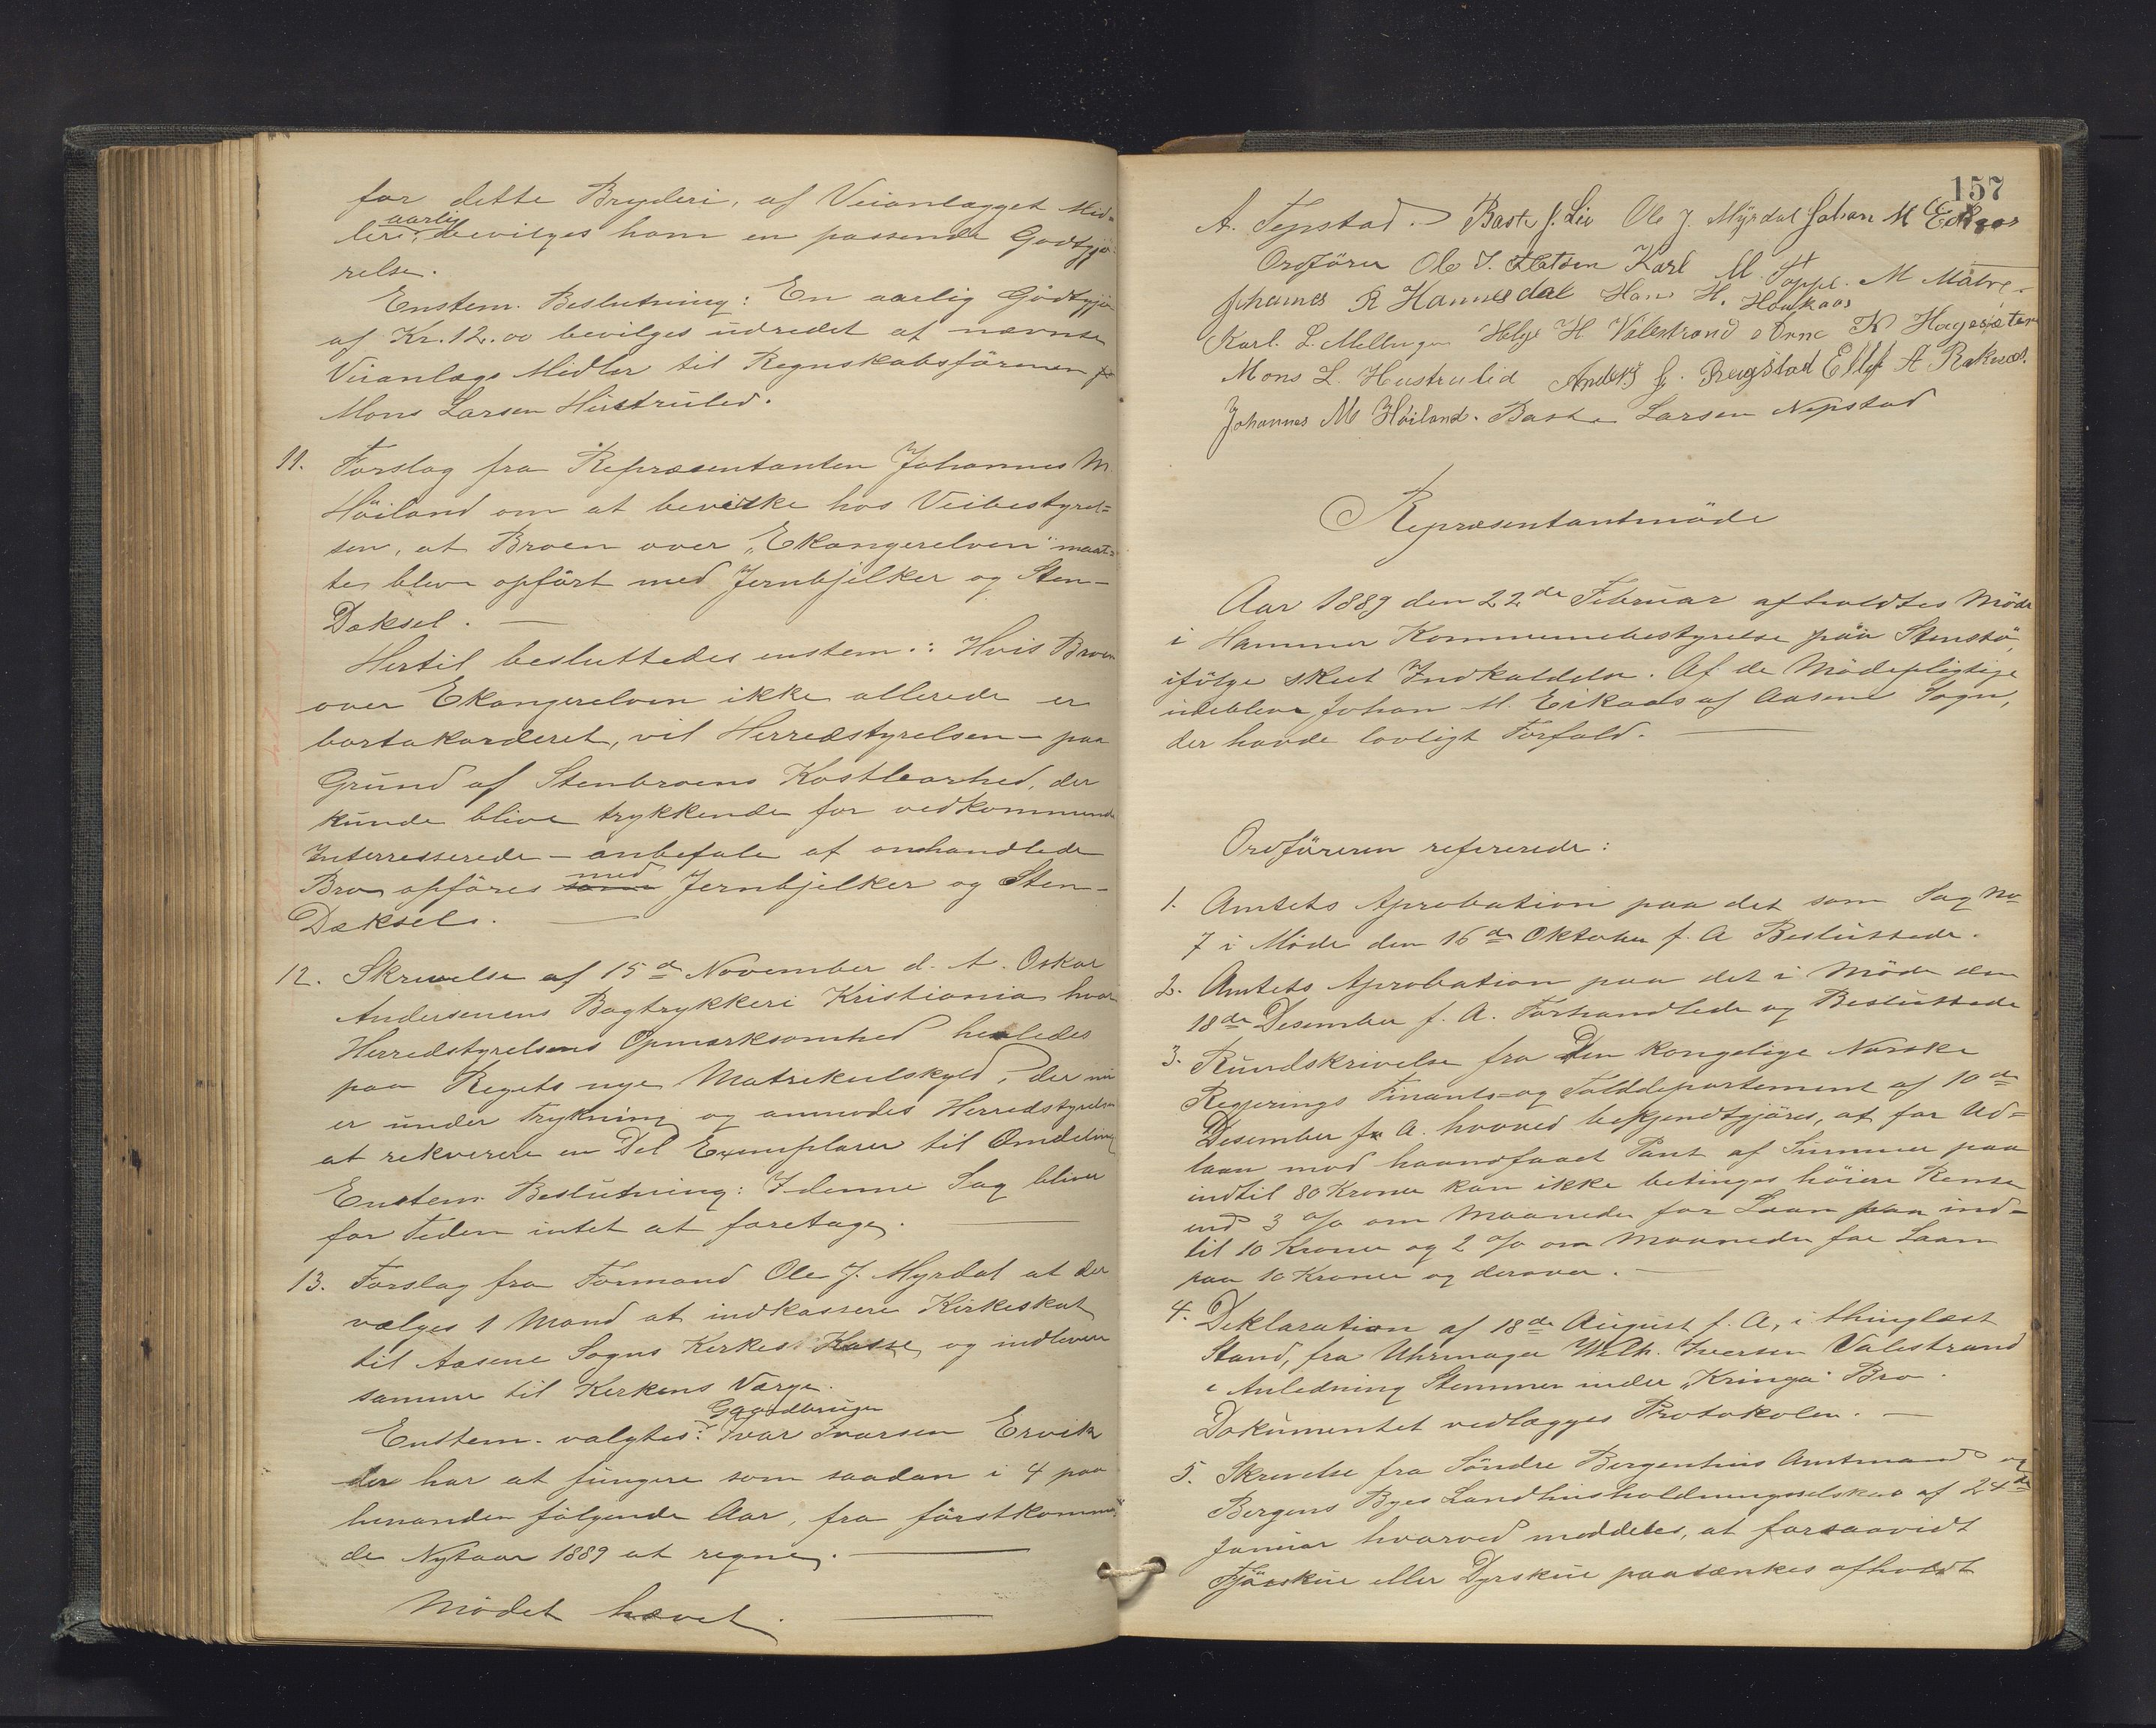 for dette Bryderi, af Veianlægget Mid=
aarlig
ler, bevilges ham en passende Godtgjö=
relse.
Enstem. Beslutning: En aarlig Godtgjör
af Kr. 12.00 bevilges udredet af nævnte
Veianlægs Midler til Regnskabsföreren
Mons Larsen Hustrulid.
11. Forslag fra Repræsentanten Johannes M.
Höiland om at bevirke hos Veibestyrel=
sen, at Broen over "Ekangerelven" maat=
te blive opfört med Jernbjelker og Sten-
Dæksel. —
Hertil besluttedes enstem.: Hvis Broen
over Ekangerelven ikke allerede er
bortakorderet, vil Herredstyrelsen – paa
Grund af Stenbroens Kostbarhed, der
kunde blive trykkende for vedkommende
Interresserede – anbefale at omhandlede
med
Bro opföres som Jernbjelker og Sten-
Dæksel. —
12. Skrivelse af 15de November d. A. Oskar
Andersenens Bogtrykkeri Kristiania hvor
Herredstyrelsens Opmærksomhed henledes
paa Rigets nye Matrikulskyld, der nu
er under Trykning og anmodes Herredstyrelsen
at rekverere en Del Exemplarer til Omdeling
Enstem. Beslutning: I denne Sag bliver
for Tiden intet at foretage. —
13. Forslag fra Formand Ole J. Myrdal at der
vælges 1 Mand at indkassere Kirkeskat
til Aasene Sogns Kirkes Kasse, og indlevere
samme til Kirkens Værge.
Gaardbruger
Enstem. valgtes: Ivar Ivarsen Ervik
der har at fungere som saadan i 4 paa
hinanden fölgende Aar, fra förstkommen=
de Nytaar 1889 at regne. —
Mödet hævet. —
157
A. Tepstad. Baste J. Lie Ole J. Myrdal Johan M Eikaas
Ordförer Ole J. Flatöen Karl M. Toppe. M Matre
Johannes R Hannesdal Hans H. Haukaas
Karl. L. Mellingen Helge H. Valestrand Arne K Hagesæter
Mons L. Hustrulid Anders J. Reigstad Ellef A Raknes.
Johannes M Höiland. Baste Larsen Nepstad
Repræsentantmöde
Aar 1889 den 22de Februar afholdtes Möde
i Hammer Kommunebestyrelse paa Stenstö,
ifölge skeet Indkaldelse. Af de Mödepligtige
udeblev Johan M. Eikaas af Aasene Sogn,
der havde lovligt Forfald. —
Ordföreren refererede:
1. Amtets Aprobation paa det som Sag No
7 i Möde den 16de Oktober f. A Besluttede.
2. Amtets Aprobation paa det i Möde den
18de Desember f. A. Forhandlede og Besluttede
3. Rundskrivelse fra Den kongelige Norske
Regjerings Finants- og Tolddepartement af 10de
Desember f. A. hvorved bekjendtgjöres, at for Ud=
laan mod haandfaaet Pant af Summer paa
indtil 80 Kroner kan ikke betinges höiere Rente
end 3 % om Maaneden for Laan paa ind=
til 10 Kroner og 2 % om Maaneden for Laan
paa 10 Kroner og derover. —
4. Deklaration af 18de August f. A, i thinglæst
Stand, fra Uhrmager Wilh. Iversen Valestrand
i Anledning Stemmen under "Kringa" Bro.
Dokumentet vedlægges Protokolen. —
5. Skrivelse fra Söndre Bergenhus Amtmand og
Bergens Byes Landhusholdningsselskab af 24de
Januar hvorved meddeles, at forsaavidt
Fjösskue eller Dyrskue paatænkes afholdt